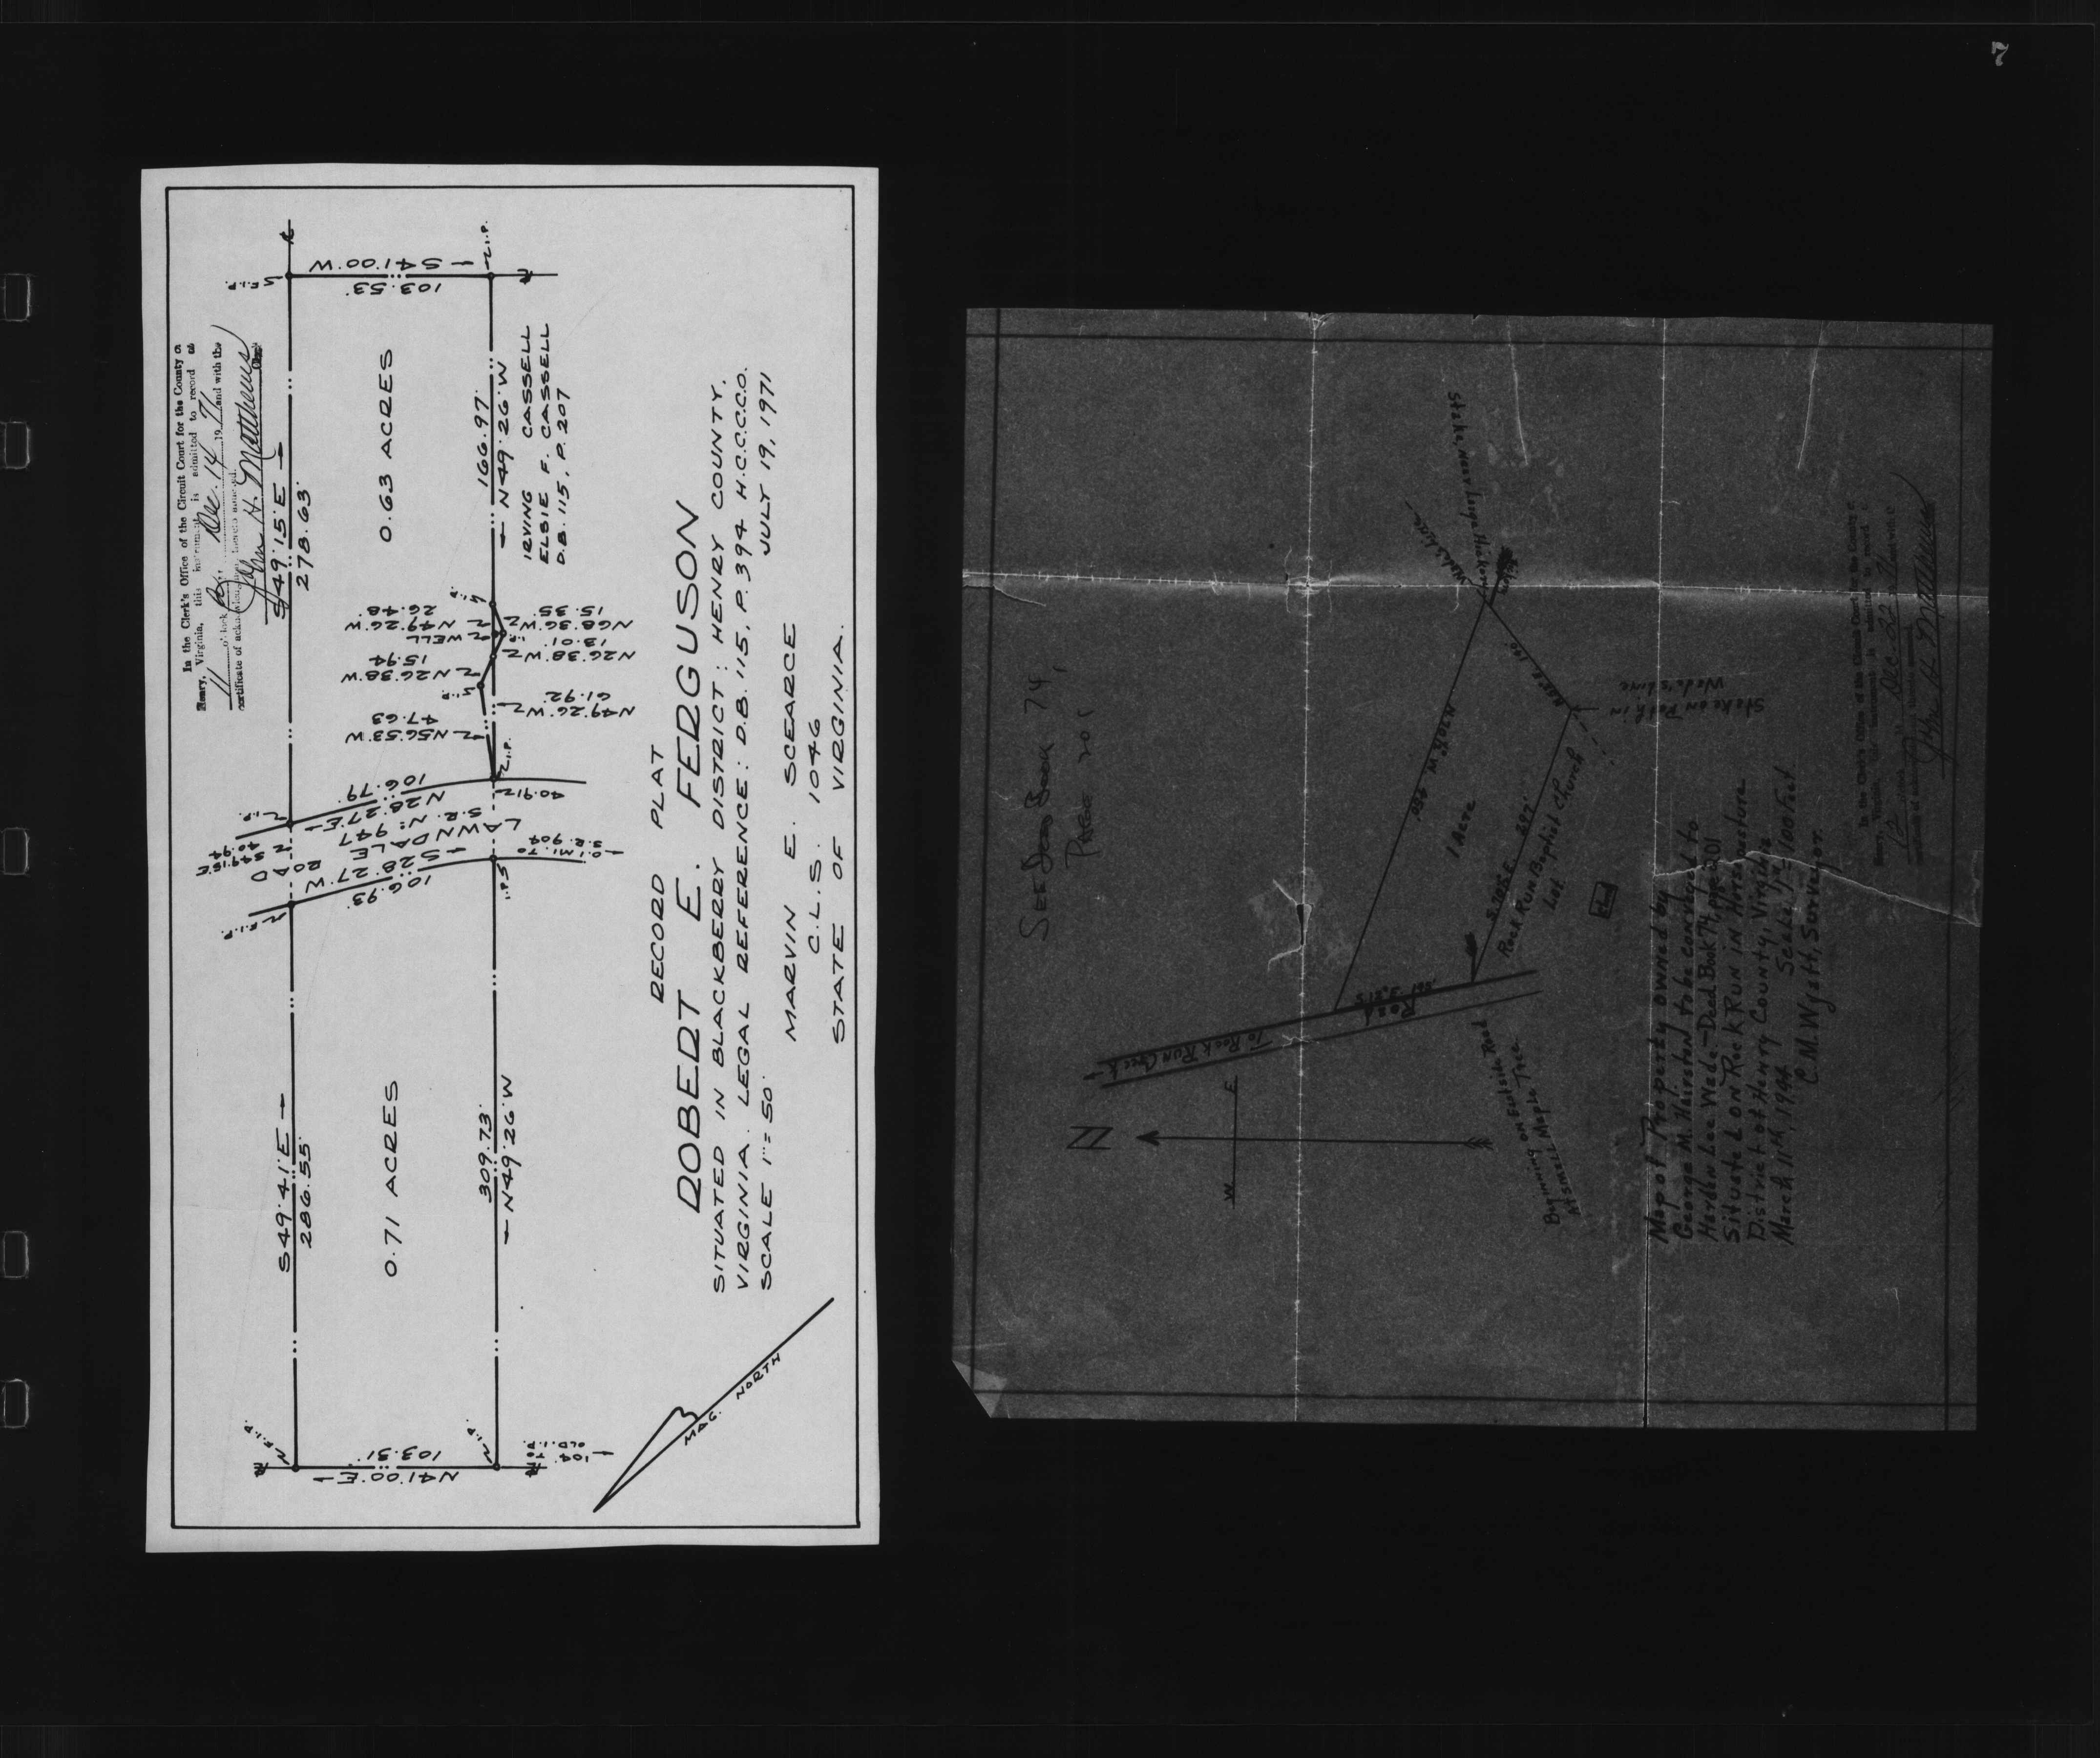 7
In the Clerk's Office of the Circuit Court for the County of
Henry, Virginia, this instrument is admitted to record at
11 o'clock A., Dec. 14 1971 and with the
certificate of acknowledgment thereto annexed.
John H. Matthews
Clerk
S49°15'E
278.63'
0.63 ACRES
S41°00'W
103.53'
F.I.P.
I.P.
166.97'
N49°26'W
IRVING CASSELL
ELSIE F. CASSELL
D.B. 115, P. 207
26.48'
N49°26'W
WELL
15.94
N26°38'W
47.63
N56°53'W
15.35
N68°36'W
13.01
N26°38'W
61.92
N49°26'W
I.P.
106.79'
N28°27'E
S.R. Nº 947
LAWNDALE ROAD
S28°27'W
106.93'
40.94
S49°15'E
40.91
0.1 MI. TO
S.R. 904
F.I.P.
I.P.
S49°41'E
286.55'
0.71 ACRES
309.73'
N49°26'W
N41°00'E
103.31'
F.I.P.
I.P.
104' TO
OLD I.P.
MAG. NORTH
RECORD PLAT
ROBERT E. FERGUSON
SITUATED IN BLACKBERRY DISTRICT: HENRY COUNTY,
VIRGINIA. LEGAL REFERENCE: D.B. 115, P. 394 H.C.C.C.O.
SCALE 1"=50' JULY 19, 1971
MARVIN E. SCEARCE
C.L.S. 1046
STATE OF VIRGINIA.
See Deed Book 74,
Page 201
N
W E
To Rock Run Creek
Road
N 70½ W 396'
1 Acre
S. 70½ E. 297'
Rock Run Baptist Church
Lot
Wade's Line
Stake, near large Hickory
Stake on Path in
Wade's Line
Beginning on East side Road
At small Maple Tree
Map of Property owned by
George M. Hairston to be conveyed to
Harden Lee Wade — Deed Book 74, page 201
Situated on Rock Run in Horsepasture
District of Henry County, Virginia
March 11th, 1944 Scale 1in = 100 Feet
C.M. Wyatt, Surveyor.
In the Clerk's Office of the Circuit Court for the County of
Henry, Virginia, this instrument is admitted to record
Dec. 22
John H. Matthews